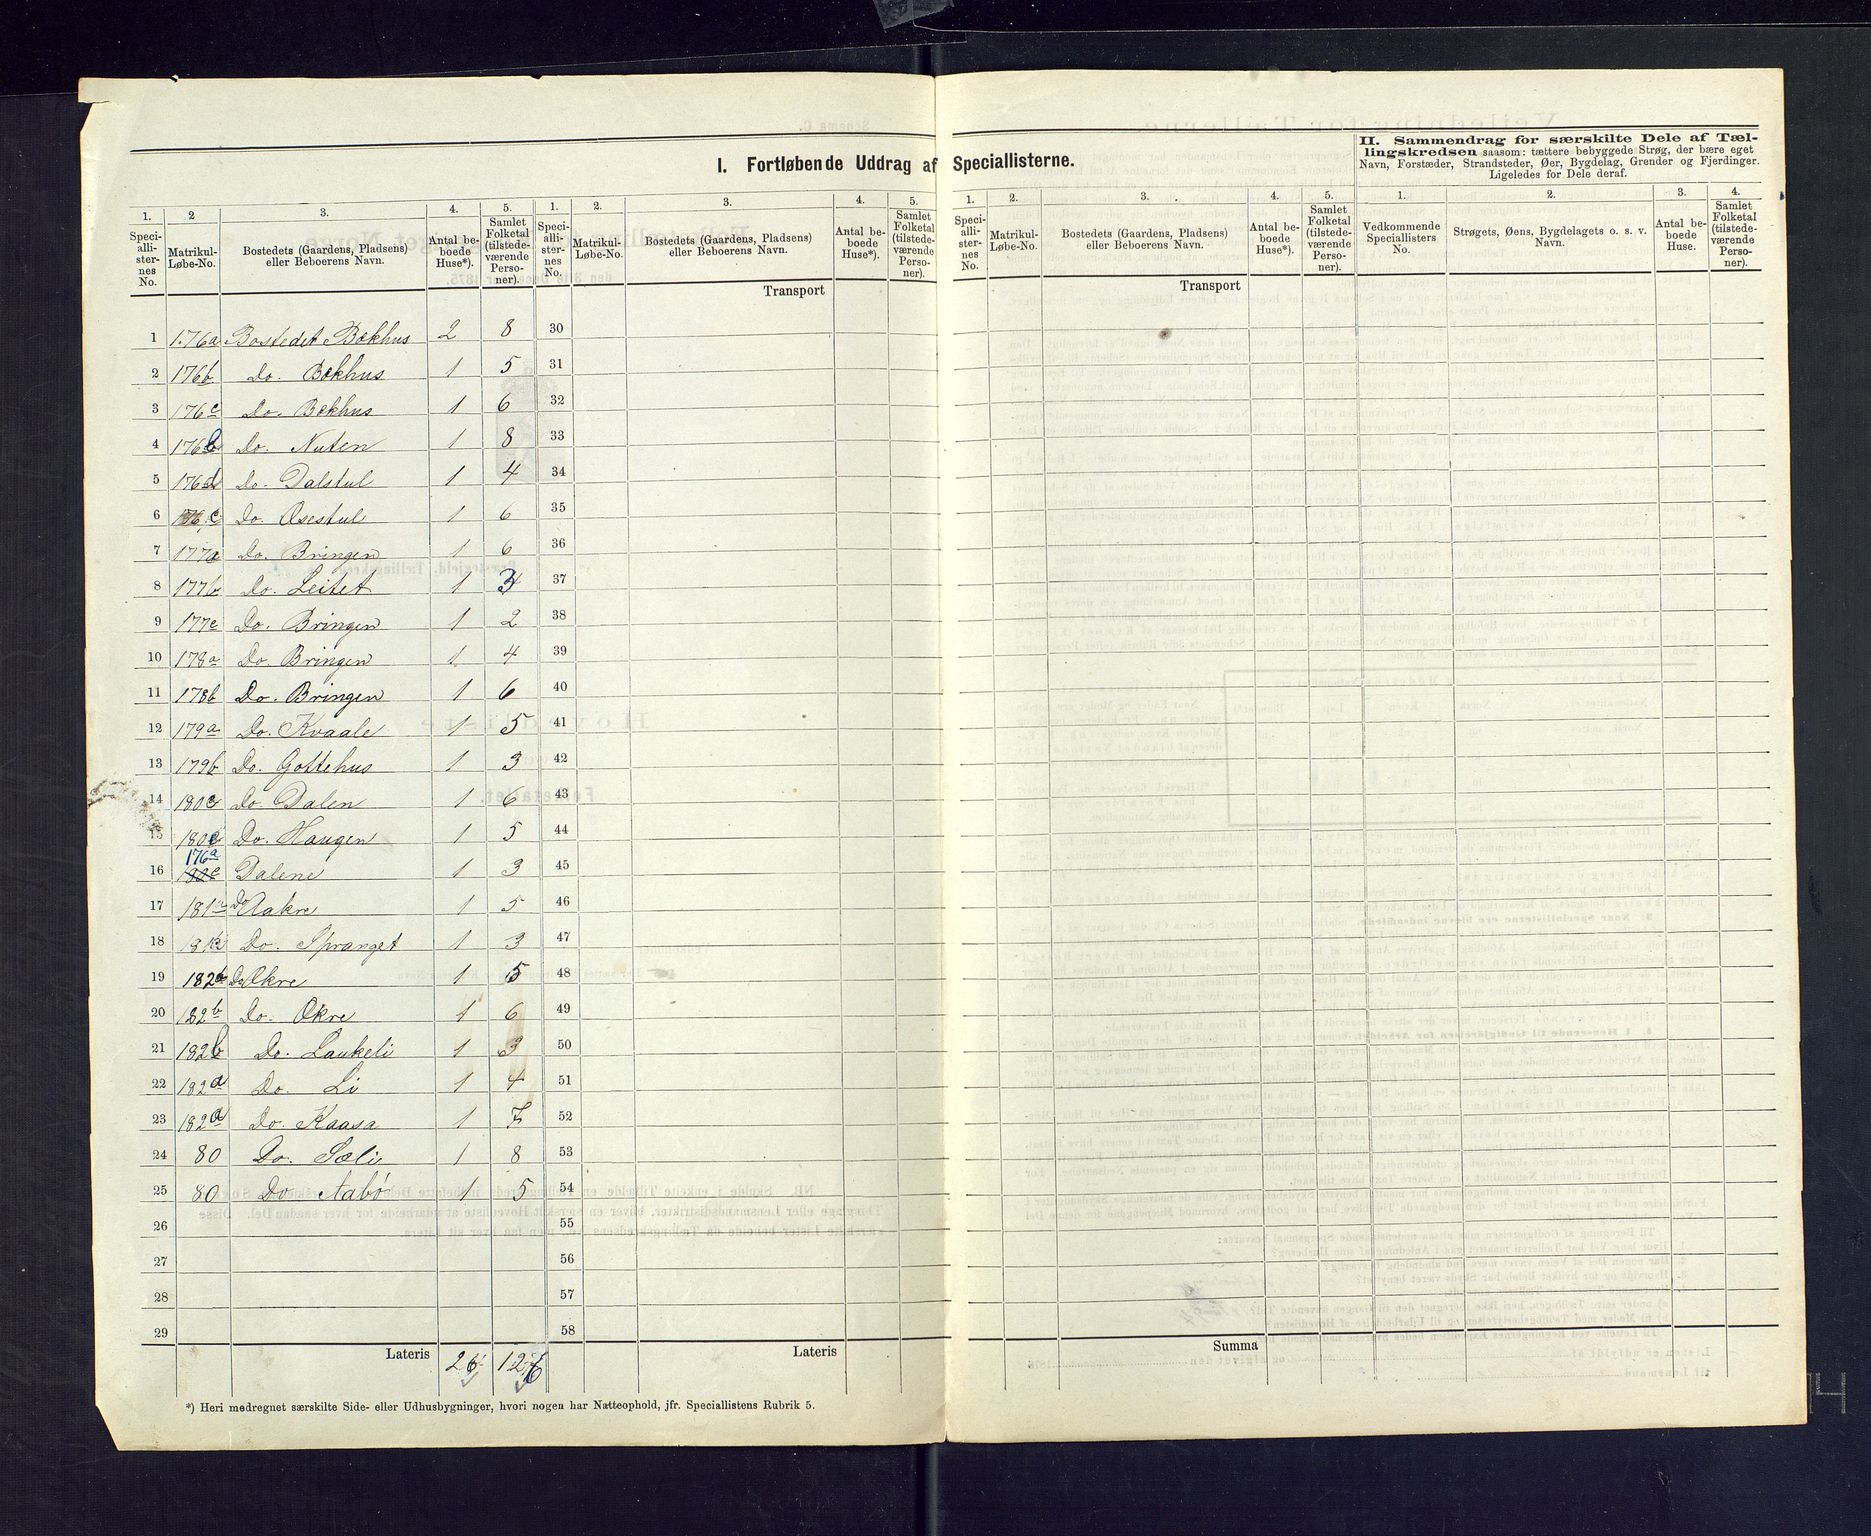 I. Fortløbende Uddrag af Speciallisterne.
II. Sammendrag for særskilte Dele af Tæl-
lingskredsen saasom: tættere bebyggede Strøg, der bære eget
Navn, Forstæder, Strandsteder, Øer, Bygdelag, Grender og Fjerdinger.
Ligeledes for Dele deraf.
1. 2 3. 4. 5. 1. 2. 3. 4. 5. 1. 2. 3. 4. 5. 1. 2. 3. 4.
Speci-allister-nes No. Matrikul-Løbe-No. Bostedets (Gaardens, Pladsens) eller Beboerens Navn. Antal be-boede Huse*). Samlet Folketal (tilstede-værende Perso-ner).
Speci-allister-nes No. Matrikul-Løbe-No. Bostedets (Gaardens, Pladsens) eller Beboerens Navn. Antal be-boede Huse*). Samlet Folketal (tilstede-værende Perso-ner).
Speci-allister-nes No. Matrikul-Løbe-No. Bostedets (Gaardens, Pladsens) eller Beboerens Navn. Antal be-boede Huse*). Samlet Folketal (tilstede-værende Perso-ner).
Vedkommende Speciallisters No. Strøgets, Øens, Bygdelagets o. s. v. Navn. Antal be-boede Huse. Samlet Folketal (tilstede-værende Perso-ner).
Transport Transport
1 176a Bostedet Bækhus 2 8 30
2 176b Do. Bækhus 1 5 31
3 176c Do. Bækhus 1 6 32
4 176b Do. Nuten 1 8 33
5 176d Do. Dalstul 1 4 34
6 Do. Øsestul 1 6 35
7 177a Do. Bringen 1 6 36
8 177b Do. Leitet 1 3 37
9 177c Do. Bringen 1 2 38
10 178a Do. Bringen 1 4 39
11 178b Do. Bringen 1 6 40
12 179a Do. Kvaale 1 5 41
13 179b Do. Gottehus 1 3 42
14 180c Do. Dalen 1 6 43
15 180c Do. Haugen 1 5 44
176a
16 180c Dalene 1 3 45
17 181a Do Aakre 1 5 46
18 Do. Spranget 1 3 47
19 182b Do Økre 1 5 48
20 182b Do. Økre 1 6 49
21 182b Do. Laukeli 1 3 50
22 182a Do. Li 1 4 51
23 182a Do. Kaasa 1 7 52
24 80 Do. Sæli 1 8 53
25 80 Do Aabø 1 5 54
26 55
27 56
28 57
29 58
Lateris 26 126 Lateris Summa
*) Heri medregnet særskilte Side- eller Udhusbygninger, hvori nogen har Natteophold, jfr. Speciallistens Rubrik 5.